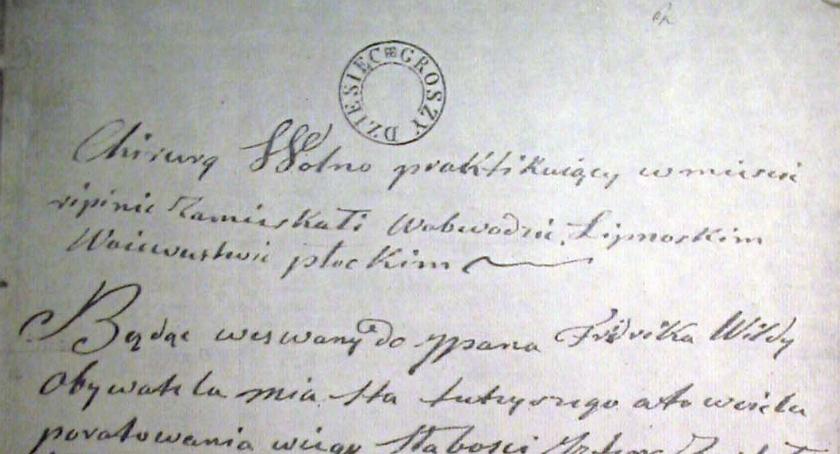 DZIESIĘĆ GROSZY
Chirurg Wolno praktikuiący w mieście
ripinie Zamieskałi Wobwodzie Lipnoskim
Woiewustwie płockim
Będąc weswany do jpana Fridrika Wildy
Obywatela miasta tuteyszego ato wcelu
poratowania wiego słabości